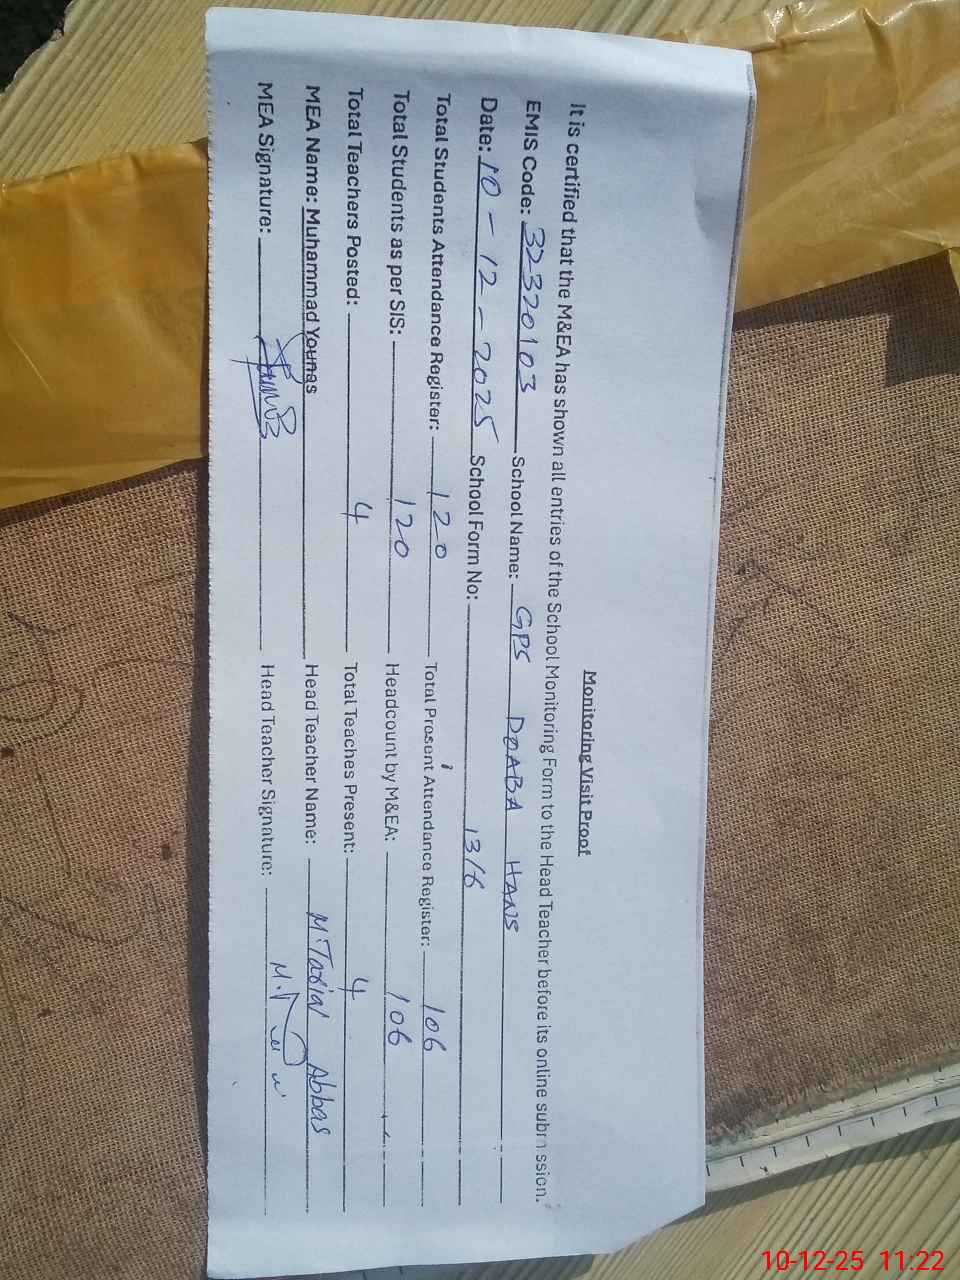 Monitoring Visit Proof
It is certified that the M&EA has shown all entries of the School Monitoring Form to the Head Teacher before its online submission.
EMIS Code: 32320103 School Name: GPS DOABA HANS
Date: 10-12-2025 School Form No: 1316
Total Students Attendance Register: 120 Total Present Attendance Register: 106
Total Students as per SIS: 120 Headcount by M&EA: 106
Total Teachers Posted: 4 Total Teaches Present: 4
MEA Name: Muhammad Younas Head Teacher Name: M. Abbas
MEA Signature: Head Teacher Signature:
10-12-25 11:22